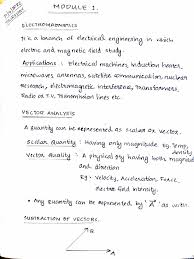 MODULE 1.
ELECTROMAGNETICS
It is a branch of electrical engineering in which
electric and magnetic field study.
Applications : Electrical machines, Induction heater,
microwaves, antennas, satellite communication, nuclear
research, electromagnetic interference, Transformers,
Radio or T.V. Transmission lines etc.
VECTOR ANALYSIS
A quantity can be represented as scalar or vector.
Scalar Quantity : Having only magnitude Eg Temp,
Vector Quantity : A physical qty having both magnitude
and direction
Eg - Velocity, Acceleration, Force,
Electric field Intensity.
• Any quantity can be represented by "A" as with
SUBTRACTION OF VECTORS.
B
A